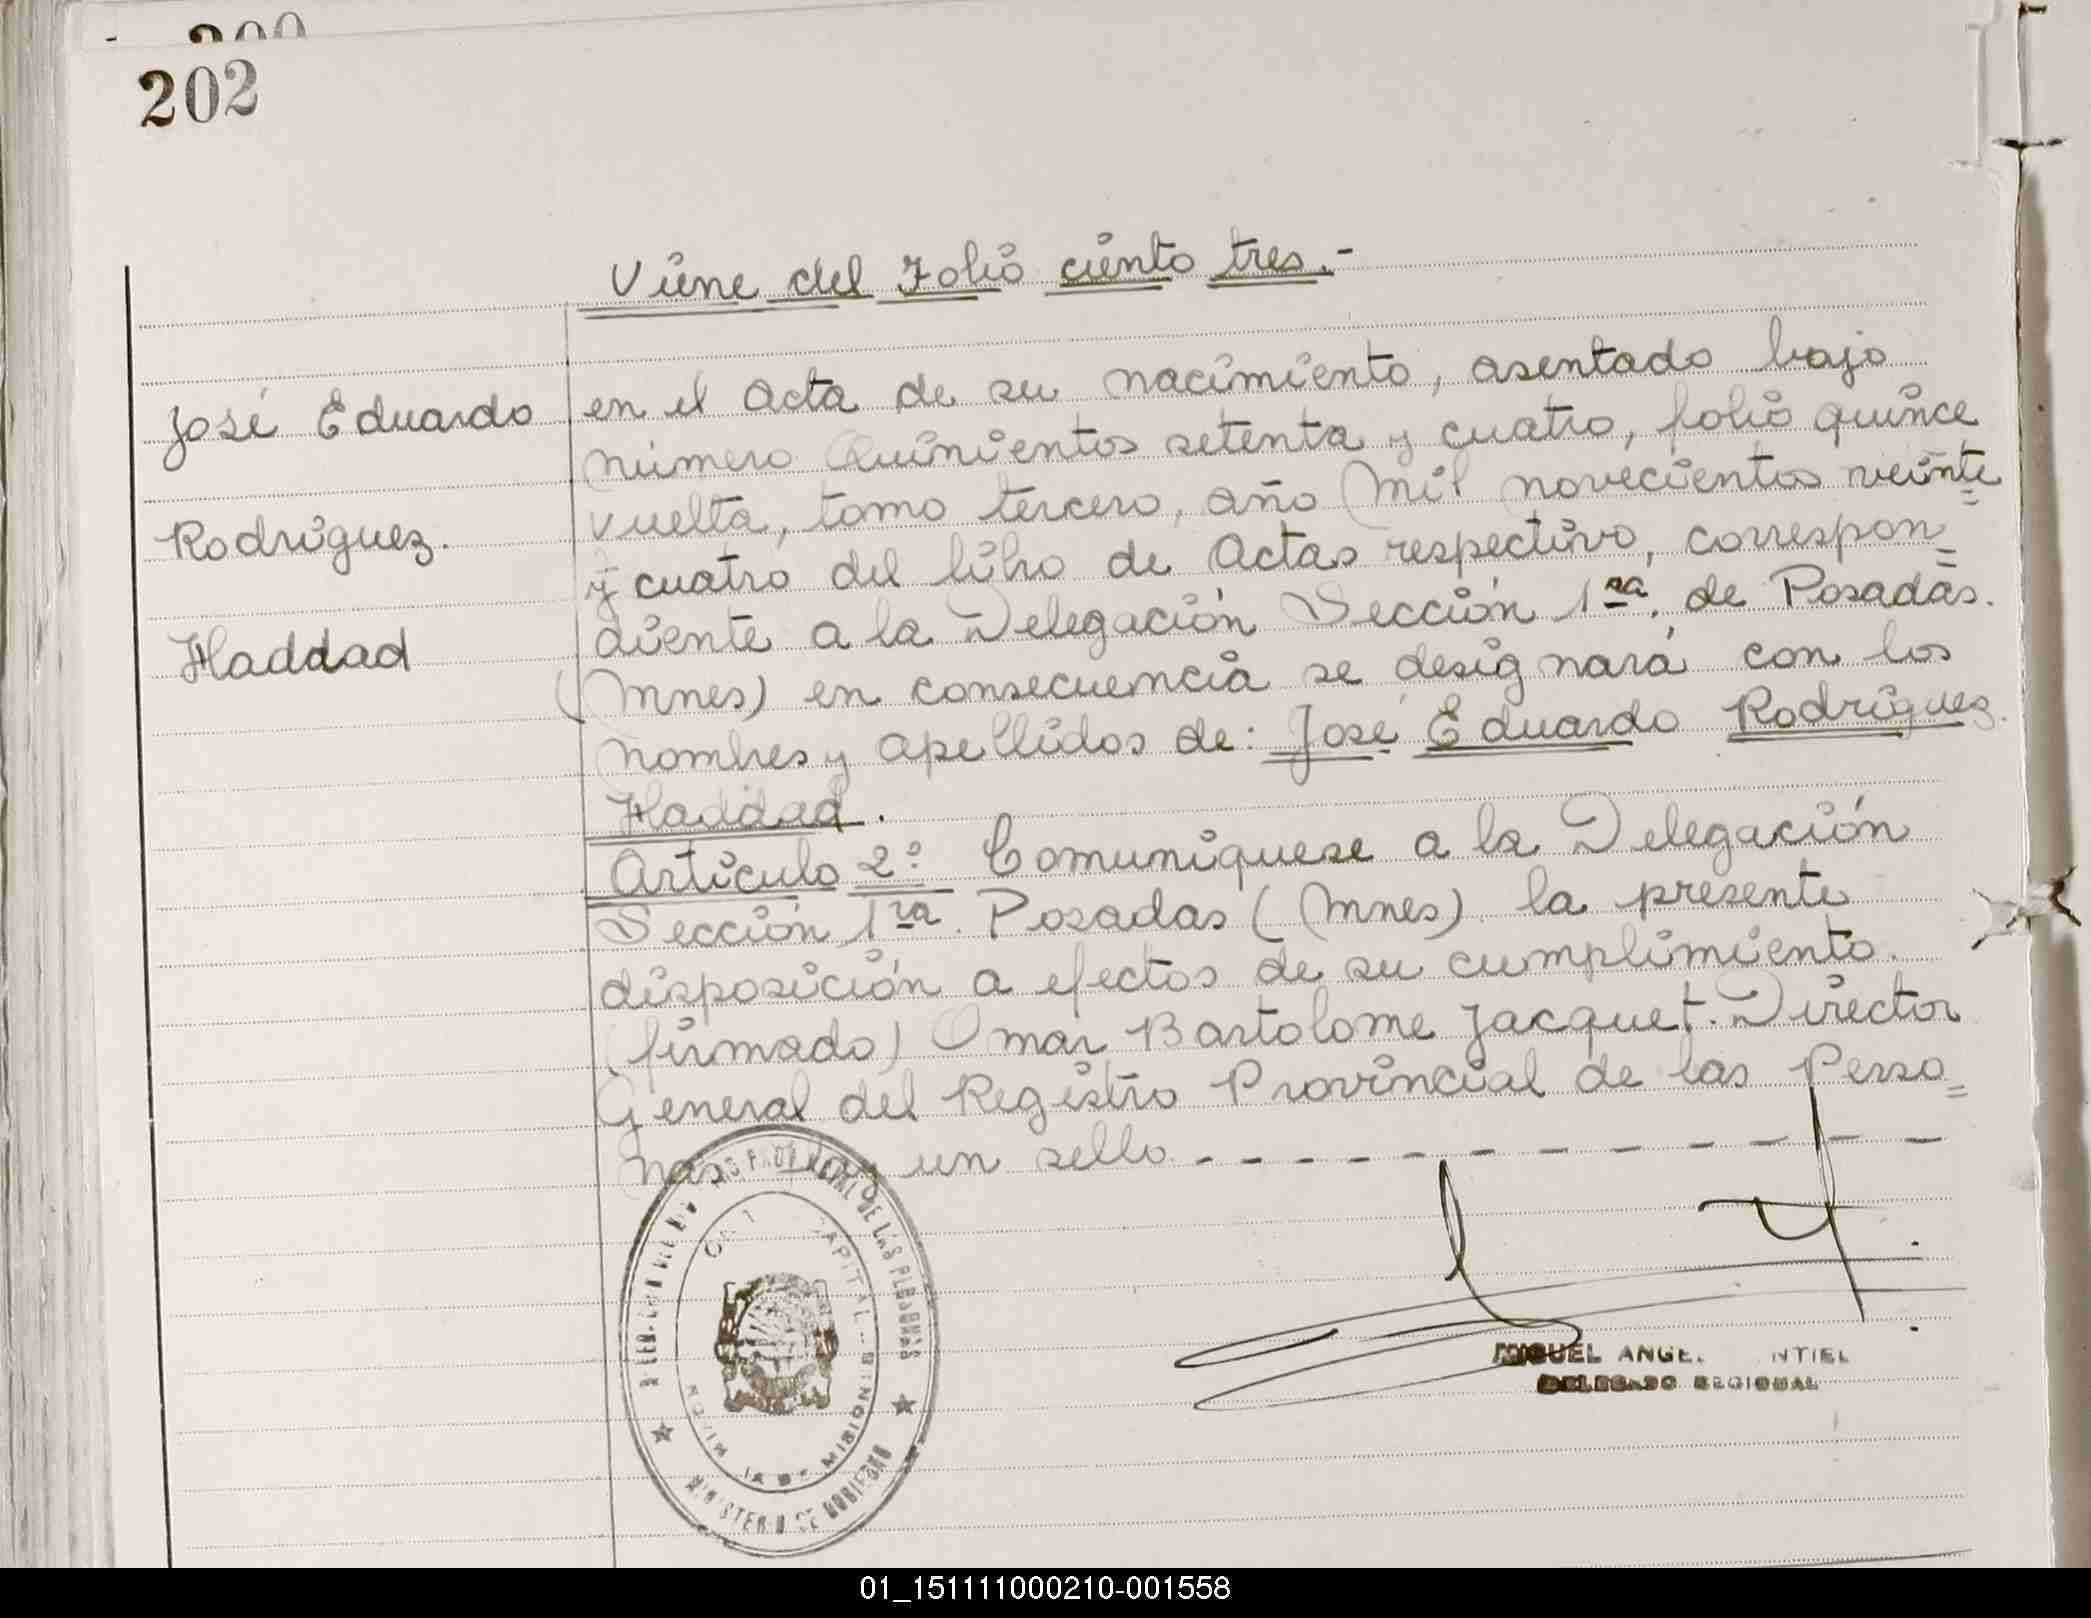 202
Viene del Folio ciento tres.-
José Eduardo
Rodríguez.
Haddad
en el acta de su nacimiento, asentado bajo
número Quinientos setenta y cuatro, folio quince
vuelta, tomo tercero, año mil novecientos veinte=
y cuatro del libro de actas respectivo, correspon=
diente a la Delegación Sección 1ra. de Posadas.
(Mnes) en consecuencia se designará con los
nombres y apellidos de: José Eduardo Rodríguez.
Haddad.
Artículo 2º: Comuníquese a la Delegación
Sección 1ra. Posadas (Mnes) la presente
disposición a efectos de su cumplimiento.
(firmado) Omar Bartolome Jacquet. Director
General del Registro Provincial de las Perso=
nas un sello - - - - - - - - - - - -
DE LAS PERSONAS
MINISTERIO DE GOBIERNO
MIGUEL ANGEL
DELEGADO REGIONAL
01_151111000210-001558